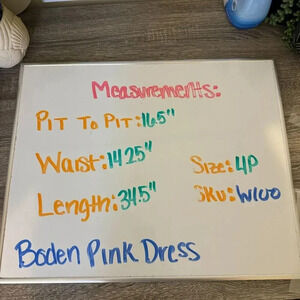 Measurements:
Pit To Pit: 16.5"
Waist: 14.25"
Size: 4P
Length: 34.5"
Sku: W100
Boden Pink Dress